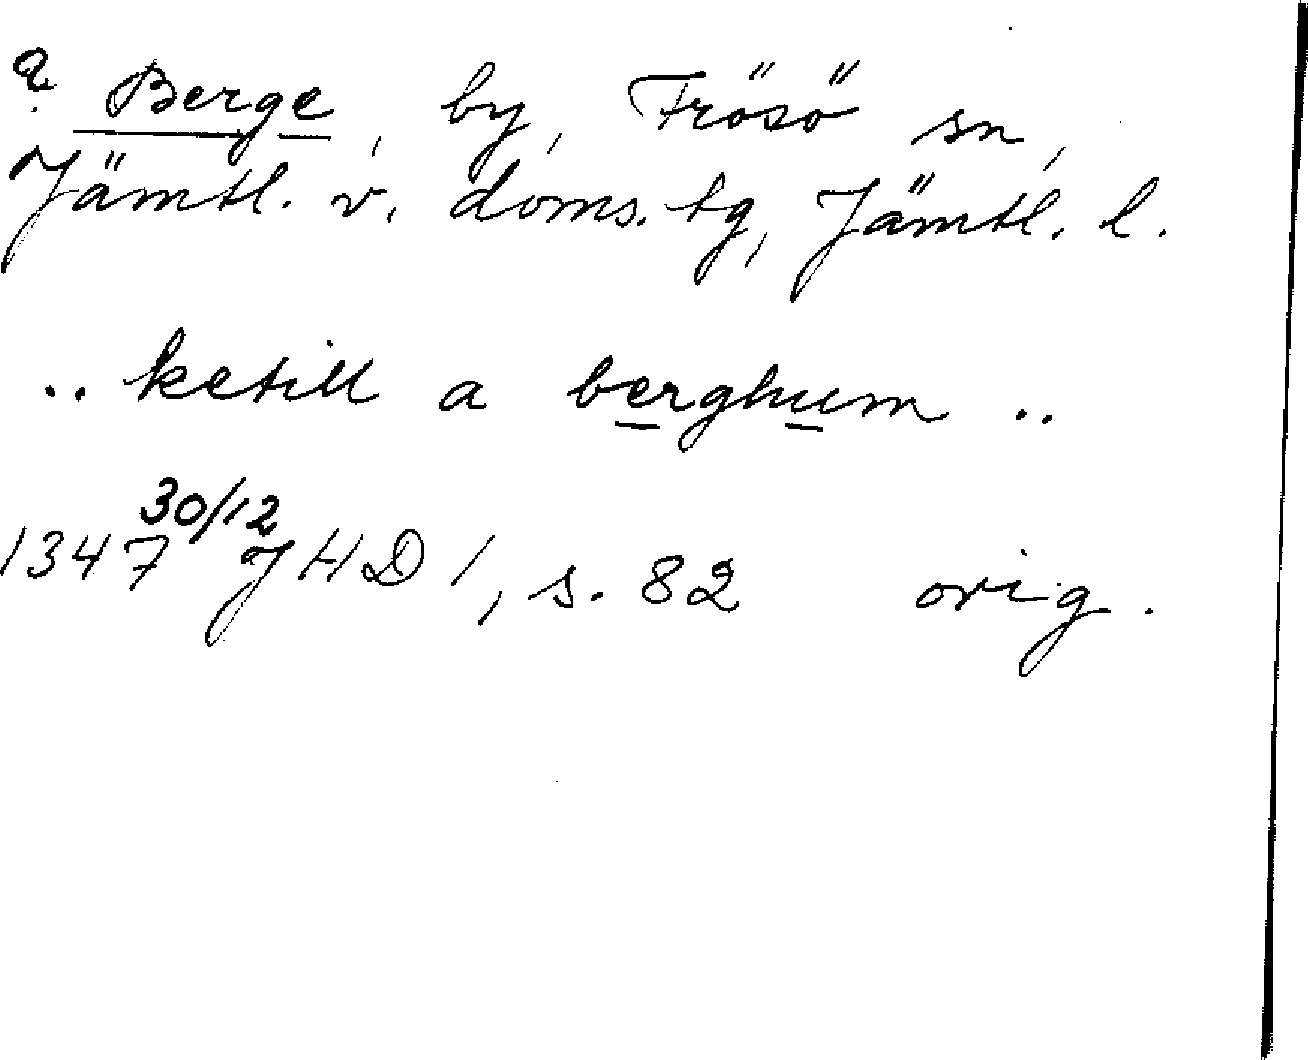 Berge, by, Frösö sn,
Jämtl. v. doms. tg, Jämtl. l.
.. ketill a berghum ..
1347 30/12 JHD 1, s. 82 orig.